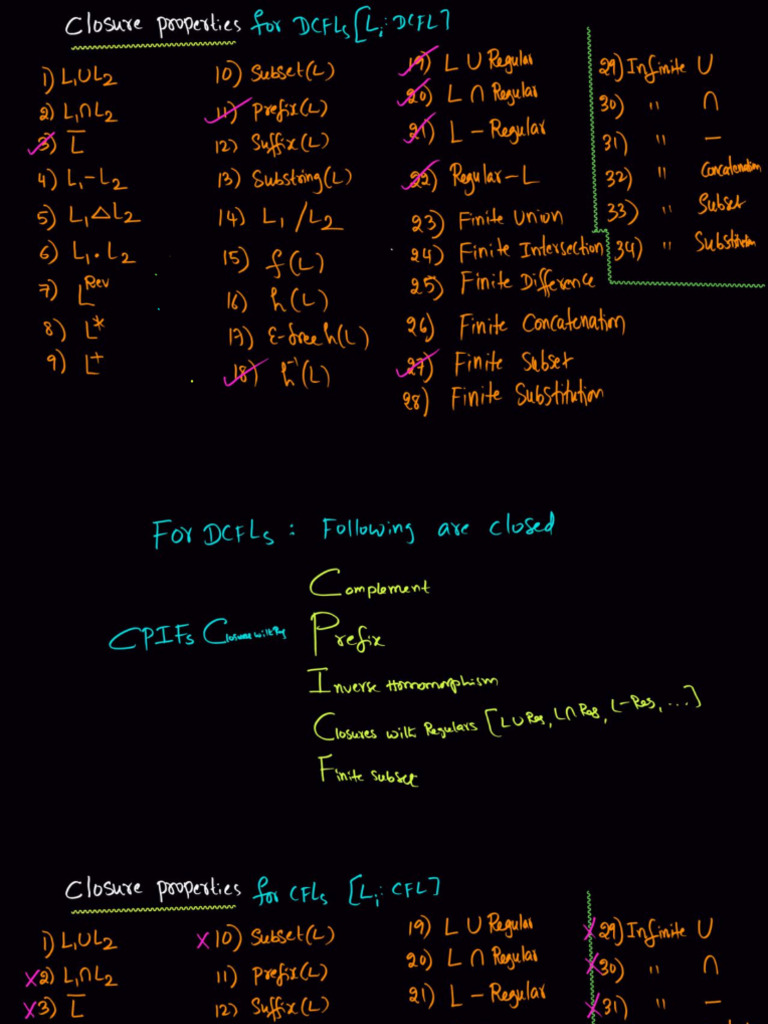 Closure properties for DCFLs [Li : DCFL]
1) L₁∪L₂
2) L₁∩L₂
3) L̅
4) L₁-L₂
5) L₁△L₂
6) L₁.L₂
7) L^Rev
8) L*
9) L⁺
10) Subset(L)
11) Prefix(L)
12) Suffix(L)
13) Substring(L)
14) L₁/L₂
15) f(L)
16) h(L)
17) ε-free h(L)
18) h⁻¹(L)
19) L ∪ Regular
20) L ∩ Regular
21) L - Regular
22) Regular-L
23) Finite Union
24) Finite Intersection
25) Finite Difference
26) Finite Concatenation
27) Finite Subset
28) Finite Substitution
29) Infinite ∪
30) " ∩
31) " -
32) " Concatenation
33) " Subset
34) " Substitution
For DCFLs : Following are closed
Complement
CPIFs Closure with Reg
Prefix
Inverse Homomorphism
Closures with Regulars [L∪Reg, L∩Reg, L-Reg, ...]
Finite subset
Closure properties for CFLs [Li : CFL]
1) L₁∪L₂
x2) L₁∩L₂
x3) L̅
x10) Subset(L)
11) Prefix(L)
12) Suffix(L)
19) L ∪ Regular
20) L ∩ Regular
21) L - Regular
x29) Infinite ∪
x30) " ∩
x31) " -